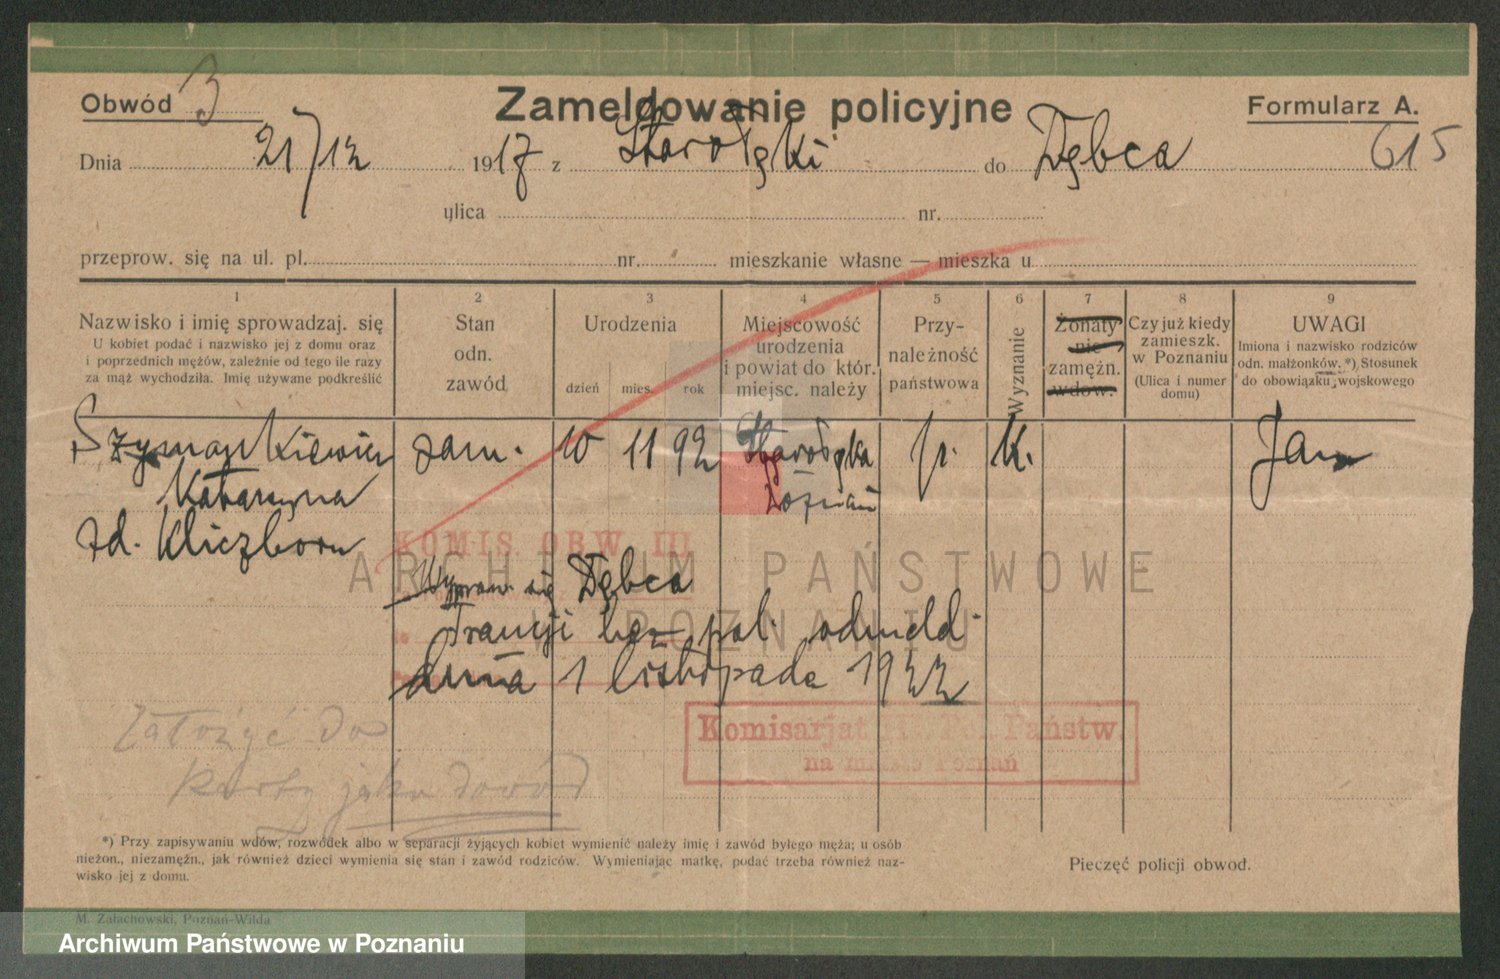 Obwód 3 Zameldowanie policyjne Formularz A.
615
Dnia 21/12 1917 z Starołęki do Dębca
ylica nr.
przeprow. się na ul. pl. nr. mieszkanie własne — mieszka u
1 2 3 4 5 6 7 8 9
Nazwisko i imię sprowadzaj. się
U kobiet podać i nazwisko jej z domu oraz
i poprzednich mężów, zależnie od tego ile razy
za mąż wychodziła. Imię używane podkreślić
Stan
odn.
zawód
Urodzenia
dzień mies. rok
Miejscowość
urodzenia
i powiat do któr.
miejsc. należy
Przy-
należność
państwowa
Wyznanie
Żonaty
nie
zamężn.
wdow.
Czy już kiedy
zamieszk.
w Poznaniu
(Ulica i numer
domu)
UWAGI
Imiona i nazwisko rodziców
odn. małżonków. *) Stosunek
do obowiązku wojskowego
Szymankiewicz zam. 10 11 92 Starołęka pr. K. Jan
Katarzyna Poznań
zd. Kliczborn
KOMIS. OBW. III
Wyprow. się Dębca
Francji bez pol. odmeld.
dnia 1 listopada 1922
Założyć do
karty jako dowód
Komisarjat Pol. Państw.
na miasto Poznań
*) Przy zapisywaniu wdów, rozwódek albo w separacji żyjących kobiet wymienić należy imię i zawód byłego męża; u osób
nieżon., niezamężn., jak również dzieci wymienia się stan i zawód rodziców. Wymieniając matkę, podać trzeba również naz-
wisko jej z domu.
Pieczęć policji obwod.
M. Załachowski, Poznań-Wilda
ARCHIWUM PAŃSTWOWE
W POZNANIU
Archiwum Państwowe w Poznaniu